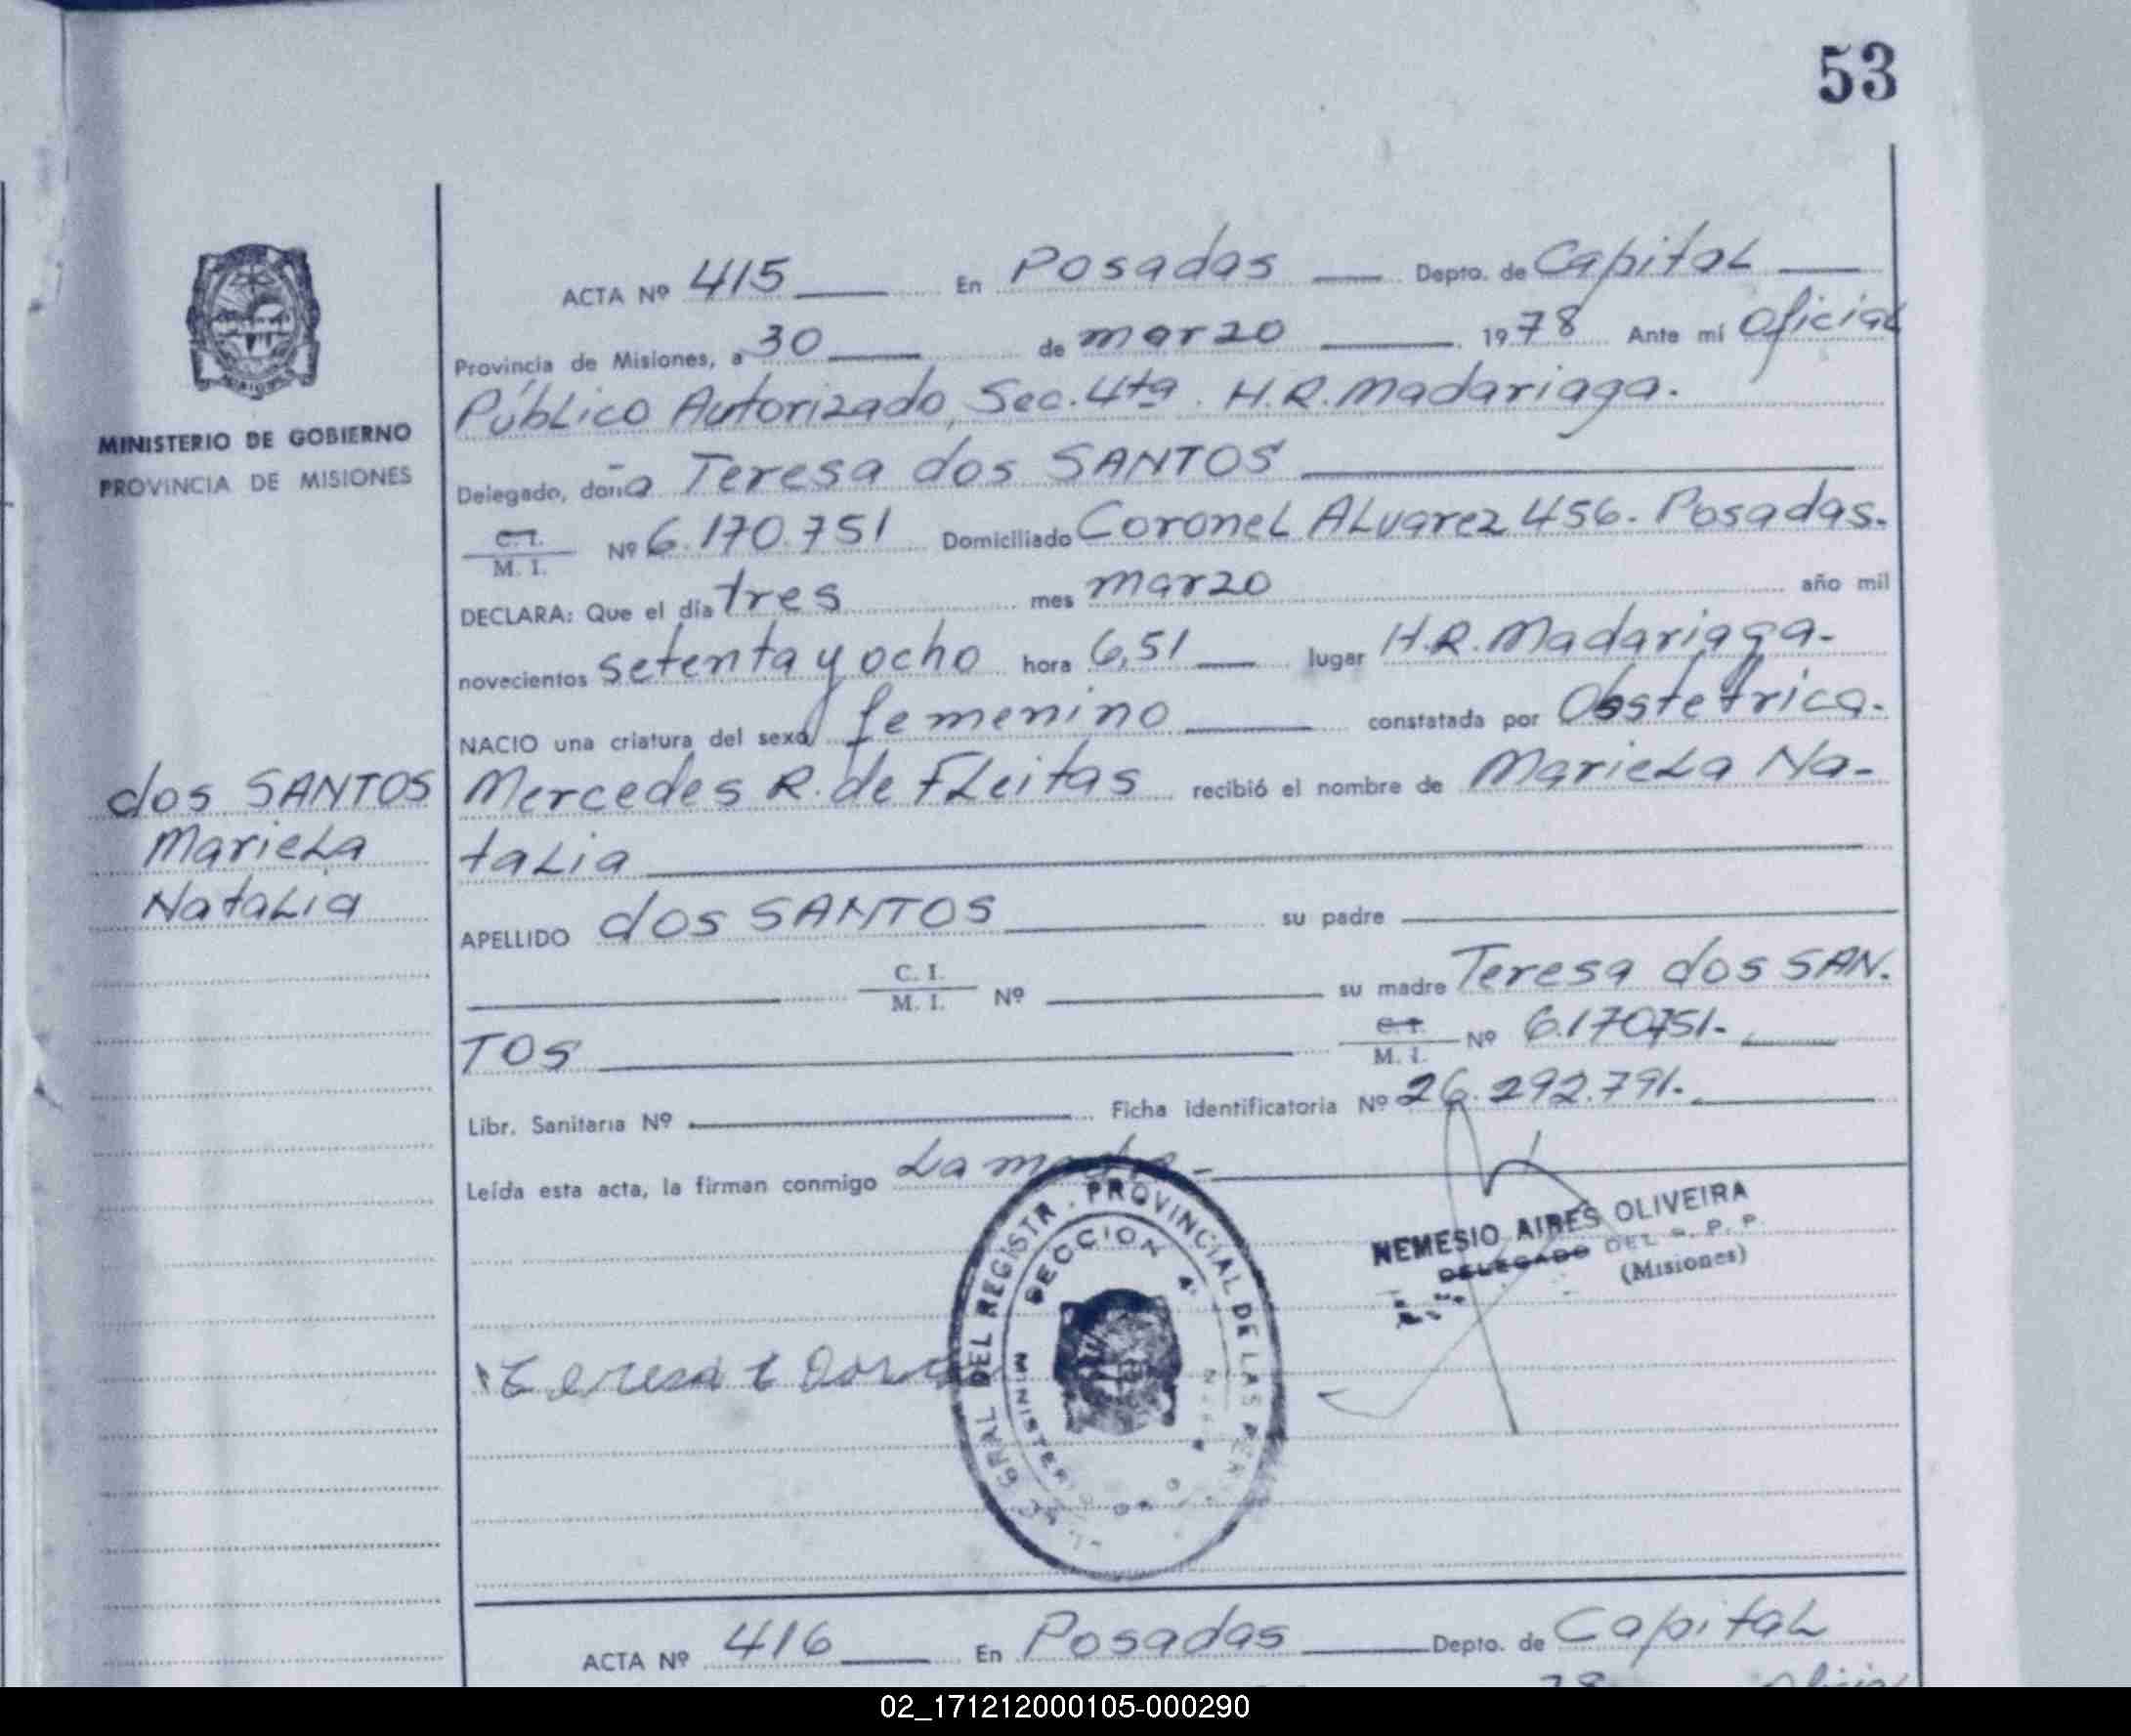 53
ACTA Nº 415 En Posadas Depto. de Capital
Provincia de Misiones, a 30 de marzo 1978 Ante mí Oficial
Público Autorizado, Sec. 4ta. H.R. Madariaga.
MINISTERIO DE GOBIERNO
PROVINCIA DE MISIONES
Delegado, doña Teresa dos SANTOS
C. I. / M. I. Nº 6.170.751 Domiciliado Coronel Alvarez 456. Posadas.
DECLARA: Que el día tres mes marzo año mil
novecientos setenta y ocho hora 6,51 lugar H.R. Madariaga-
NACIO una criatura del sexo femenino constatada por Obstetrica.
dos SANTOS
Mariela
Natalia
Mercedes R. de Fleitas recibió el nombre de Mariela Na-
talia
APELLIDO dos SANTOS su padre
C. I. / M. I. Nº su madre Teresa dos SAN.
TOS C. I. / M. I. Nº 6.170751-
Libr. Sanitaria Nº Ficha identificatoria Nº 26.292.791-
Leída esta acta, la firman conmigo La madre-
GRAL DEL REGISTR. PROVINCIAL DE LAS
SECCION 4ª
NEMESIO AIRES OLIVEIRA
DELEGADO DEL R. P. P.
(Misiones)
Teresa
ACTA Nº 416 En Posadas Depto. de Capital
78 Oficial
02_171212000105-000290